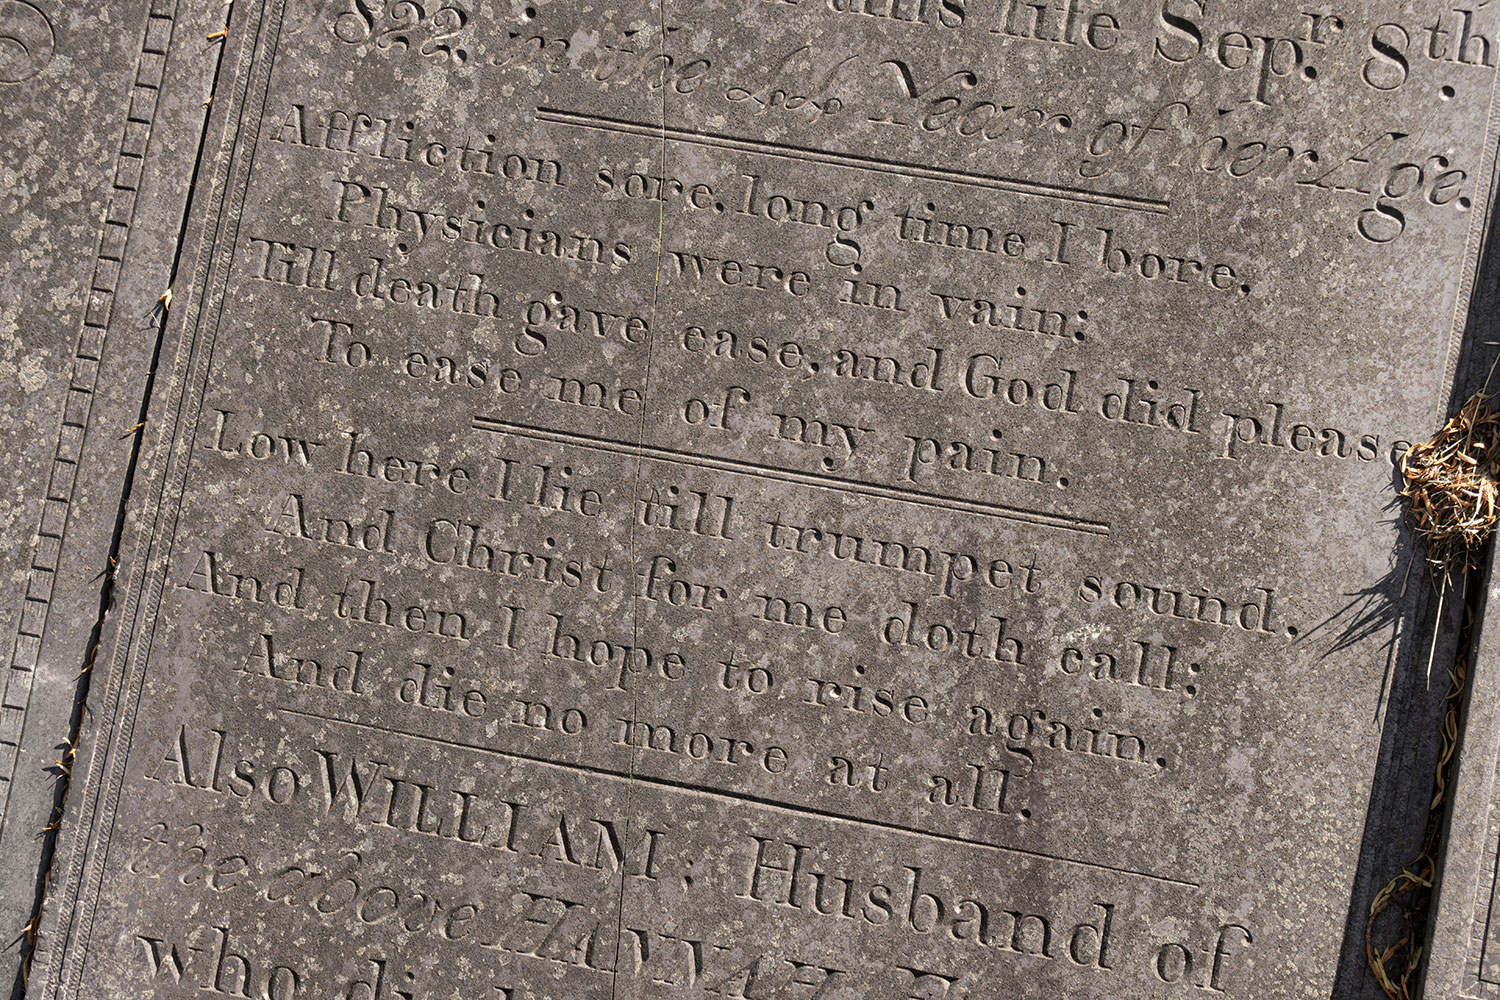 this life Sepr. 8th
1822 in the Year of her Age.
Affliction sore, long time I bore,
Physicians were in vain:
Till death gave ease, and God did please
To ease me of my pain.
Low here I lie till trumpet sound.
And Christ for me doth call:
And then I hope to rise again,
And die no more at all.
Also WILLIAM: Husband of
the above HANNAH
who